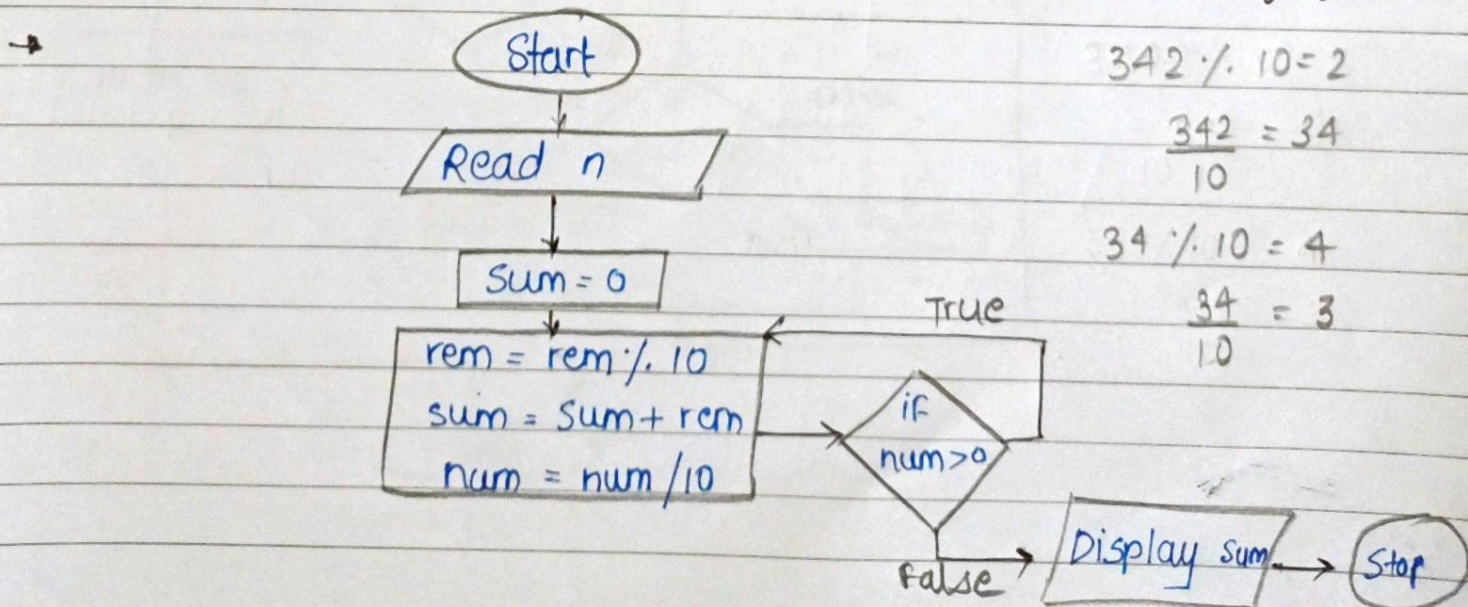 Start
Read n
sum = 0
rem = rem % 10
sum = sum + rem
num = num / 10
if
num>0
True
False
Display sum
Stop
342 % 10 = 2
342/10 = 34
34 % 10 = 4
34/10 = 3